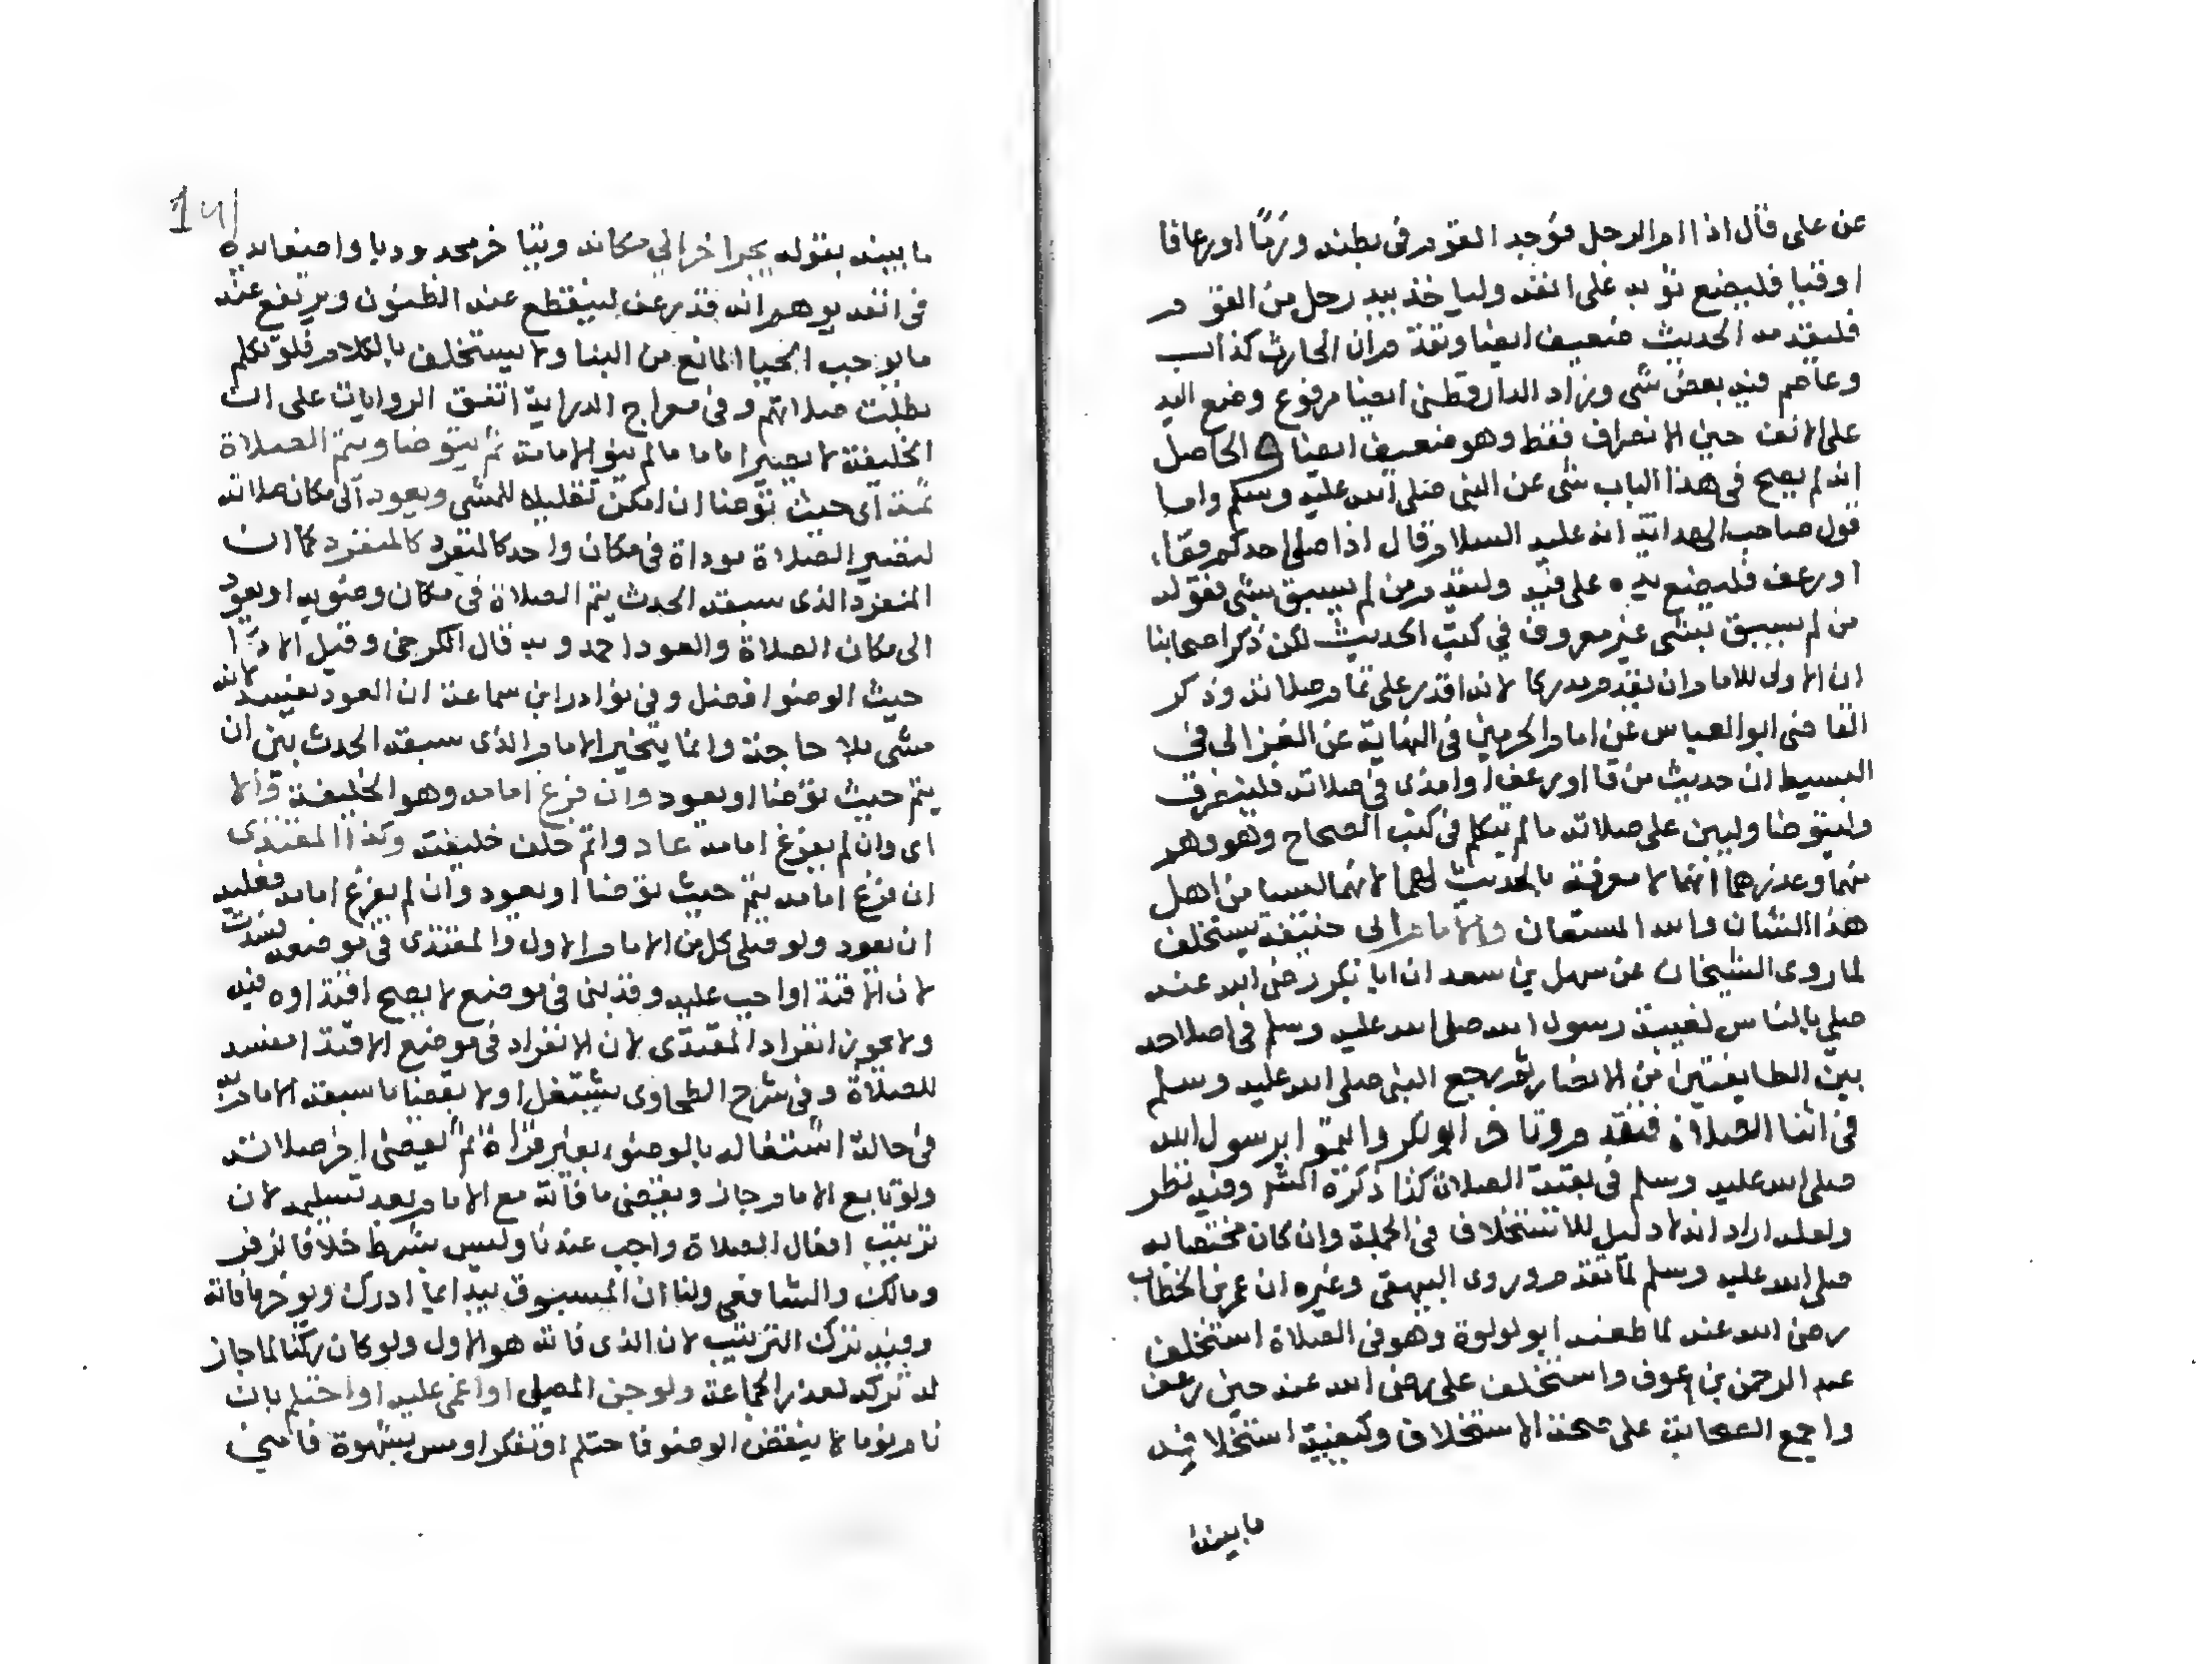 عن على قال اذا ام الرجل فوجد القوم فى بطنه رزءًا او رعافا
او قيا فليضع ثوبه على انفه وليا خذ بيد رجل من القو م
فليقدمه الحديث ضعيف ايضا وثقة مران الحارث كذاب
وعاصم فيه بعض شى وزاد الدارقطنى ايضا مرفوع وضع اليد
على الانف حين الانصراف فقط وهو ضعيف ايضا والحاصل
انه لم يصح فى هذا الباب شى عن النبى صلى الله عليه وسلم واما
قول صاحب الهداية انه عليه السلام قال اذا صلى احدكم فقاء
او رعف فليضع يده على فيه وليقدم من لم يسبق بشى فقوله
من لم يسبق بشى غير معروف في كتب الحديث لكن ذكر اصحابنا
ان الاولى للامام ان يقدم مدركا لانه اقدر على تمام صلاته وذكر
القاضى ابو العباس عن امام الحرمين فى النهاية عن الغزالى فى
البسيط ان حديث من قا او رعف او امذى فى صلاته فلينصرف
وليتوضا وليبن على صلاته ما لم يتكلم فى كتب الصحاح وهو وهم
منهما وعذرهما انهما لا معرفة بالحديث لهما لانهما ليسا من اهل
هذا الشان والله المستعان والامام ابى حنيفة يستخلف
لما روى الشيخان عن سهل بن سعد ان ابا بكر رضى الله عنه
صلى بالناس لغيبة رسول الله صلى الله عليه وسلم فى اصلاحه
بين الطايفتين من الانصار ثم رجع النبى صلى الله عليه وسلم
فى اثنا الصلاة فتقدم وتا خر ابو بكر وايتموا برسول الله
صلى الله عليه وسلم فى بقية الصلاة كذا ذكره الش وفيه نظر
ولعله اراد انه لا دليل للاستخلاف فى الجملة وان كان مختصا به
صلى الله عليه وسلم لما تقدم وروى البيهقى وغيره ان عمر بن الخطاب
رضى الله عنه لما طعنه ابو لولوة وهو فى الصلاة استخلف
عبد الرحمن بن عوف واستخلف على رضى الله عنه حين رعف
واجمع الصحابة على صحة الاستخلاف وكيفية استخلافه
ما بينه
ما بينه بقوله يجر اخر الى مكانه ويتا خر محدودبا واضعا يده
فى انفه يوهم انه قد رعف لينقطع عنه الظنون ويرتفع عنه
ما يوجب الحيا المانع من البنا ولا يستخلف بالكلام فلو تكلم
بطلت صلاتهم وفى معراج الدراية اتفق الروايات على ان
الخليفة لا يصير اماما ما لم ينو الامامة ثم يتوضا ويتم الصلاة
ثمة اى حيث توضا ان امكن تقليلا للمشى ويعود الى مكان صلاته
لتصير الصلاة موداة فى مكان واحد كالمنفرد كالمنفرد كما ان
المنفرد الذى سبقه الحدث يتم الصلاة فى مكان وضويه او يعود
الى مكان الصلاة والعود احمد وبه قال الكرخى وقيل الادا
حيث الوضوا فضل وفى نوادر ابن سماعة ان العود يفسد لانه
مشى بلا حاجة وانما يتخير الامام الذى سبقه الحدث بين ان
يتم حيث توضا او يعود وان فرغ امامه وهو الخليفة والا
اى وان لم يفرغ امامه عاد واتم خلف خليفته وكذا المقتدى
ان فرغ امامه يتم حيث توضا او يعود وان لم يفرغ امامه فعليه
ان يعود ولو صلى كل من الامام الاول والمقتدى فى موضعه فسدت
لان الاقتدا واجب عليه وقد بنى فى موضع لا يصح اقتداوه فيه
ولا يجوز انفراد المقتدى لان الانفراد فى موضع الاقتدا مفسد
للصلاة وفى شرح الطحاوى يشتغل اولا بقضا ما سبقه الامام به
فى حالة اشتغاله بالوضوء بغير قراة ثم يقضى اخر صلاته
ولو تابع الامام جاز ويقضى ما فاته مع الامام بعد تسليمه لان
ترتيب افعال الصلاة واجب عندنا وليس بشرط خلافا لزفر
ومالك والشافعى ولنا ان المسبوق يبدا بما ادرك ويوخر ما فاته
وفيه ترك الترتيب لان الذى فاته هو الاول ولو كان ركنا لما جاز
له تركه لعذر الجماعة ولو جن المصلى او اغمى عليه او احتلم بان
نام نوما لا ينقض الوضو فاحتلم او تفكر او مس بشهوة فامنى